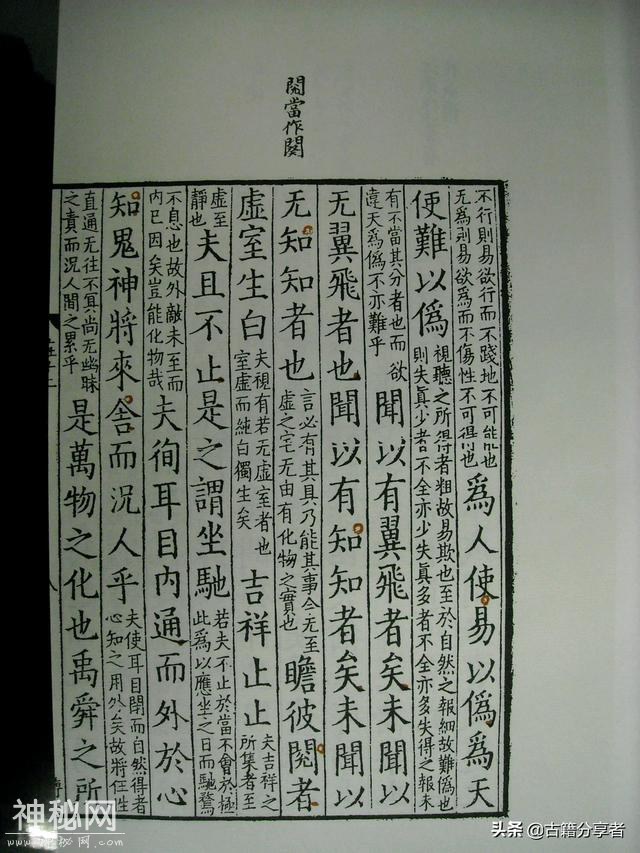 閱當作闋
不行則易欲行而不踐地不可能也
无爲則易欲爲而不傷性不可得也
爲人使易以僞爲天
使難以僞
視聽之所得者粗故易欺也至於自然之報細故難僞也
則失眞少者不全亦少失眞多者不全亦多失得之報未
有不當其分者也而欲
違天爲僞不亦難乎
聞以有翼飛者矣未聞以
无翼飛者也聞以有知知者矣未聞以
无知知者也
言必有其具乃能其事今无至
虛之宅无由有化物之實也
瞻彼閱者
虛室生白
夫視有若无虛室者也
室虛而純白獨生矣
吉祥止止
夫吉祥之
所集者至
虛至
靜也
夫且不止是之謂坐馳
若夫不止於當不會於極
此爲以應坐之日而馳騖
不息也故外敵未至而
內已困矣豈能化物哉
夫徇耳目內通而外於心
知鬼神將來舍而況人乎
夫使耳目閉而自然得者
心知之用外矣故將任性
直通无往不冥尚无幽昧
之責而況人間之累乎
是萬物之化也禹舜之所
神秘网
头条 @古籍分享者